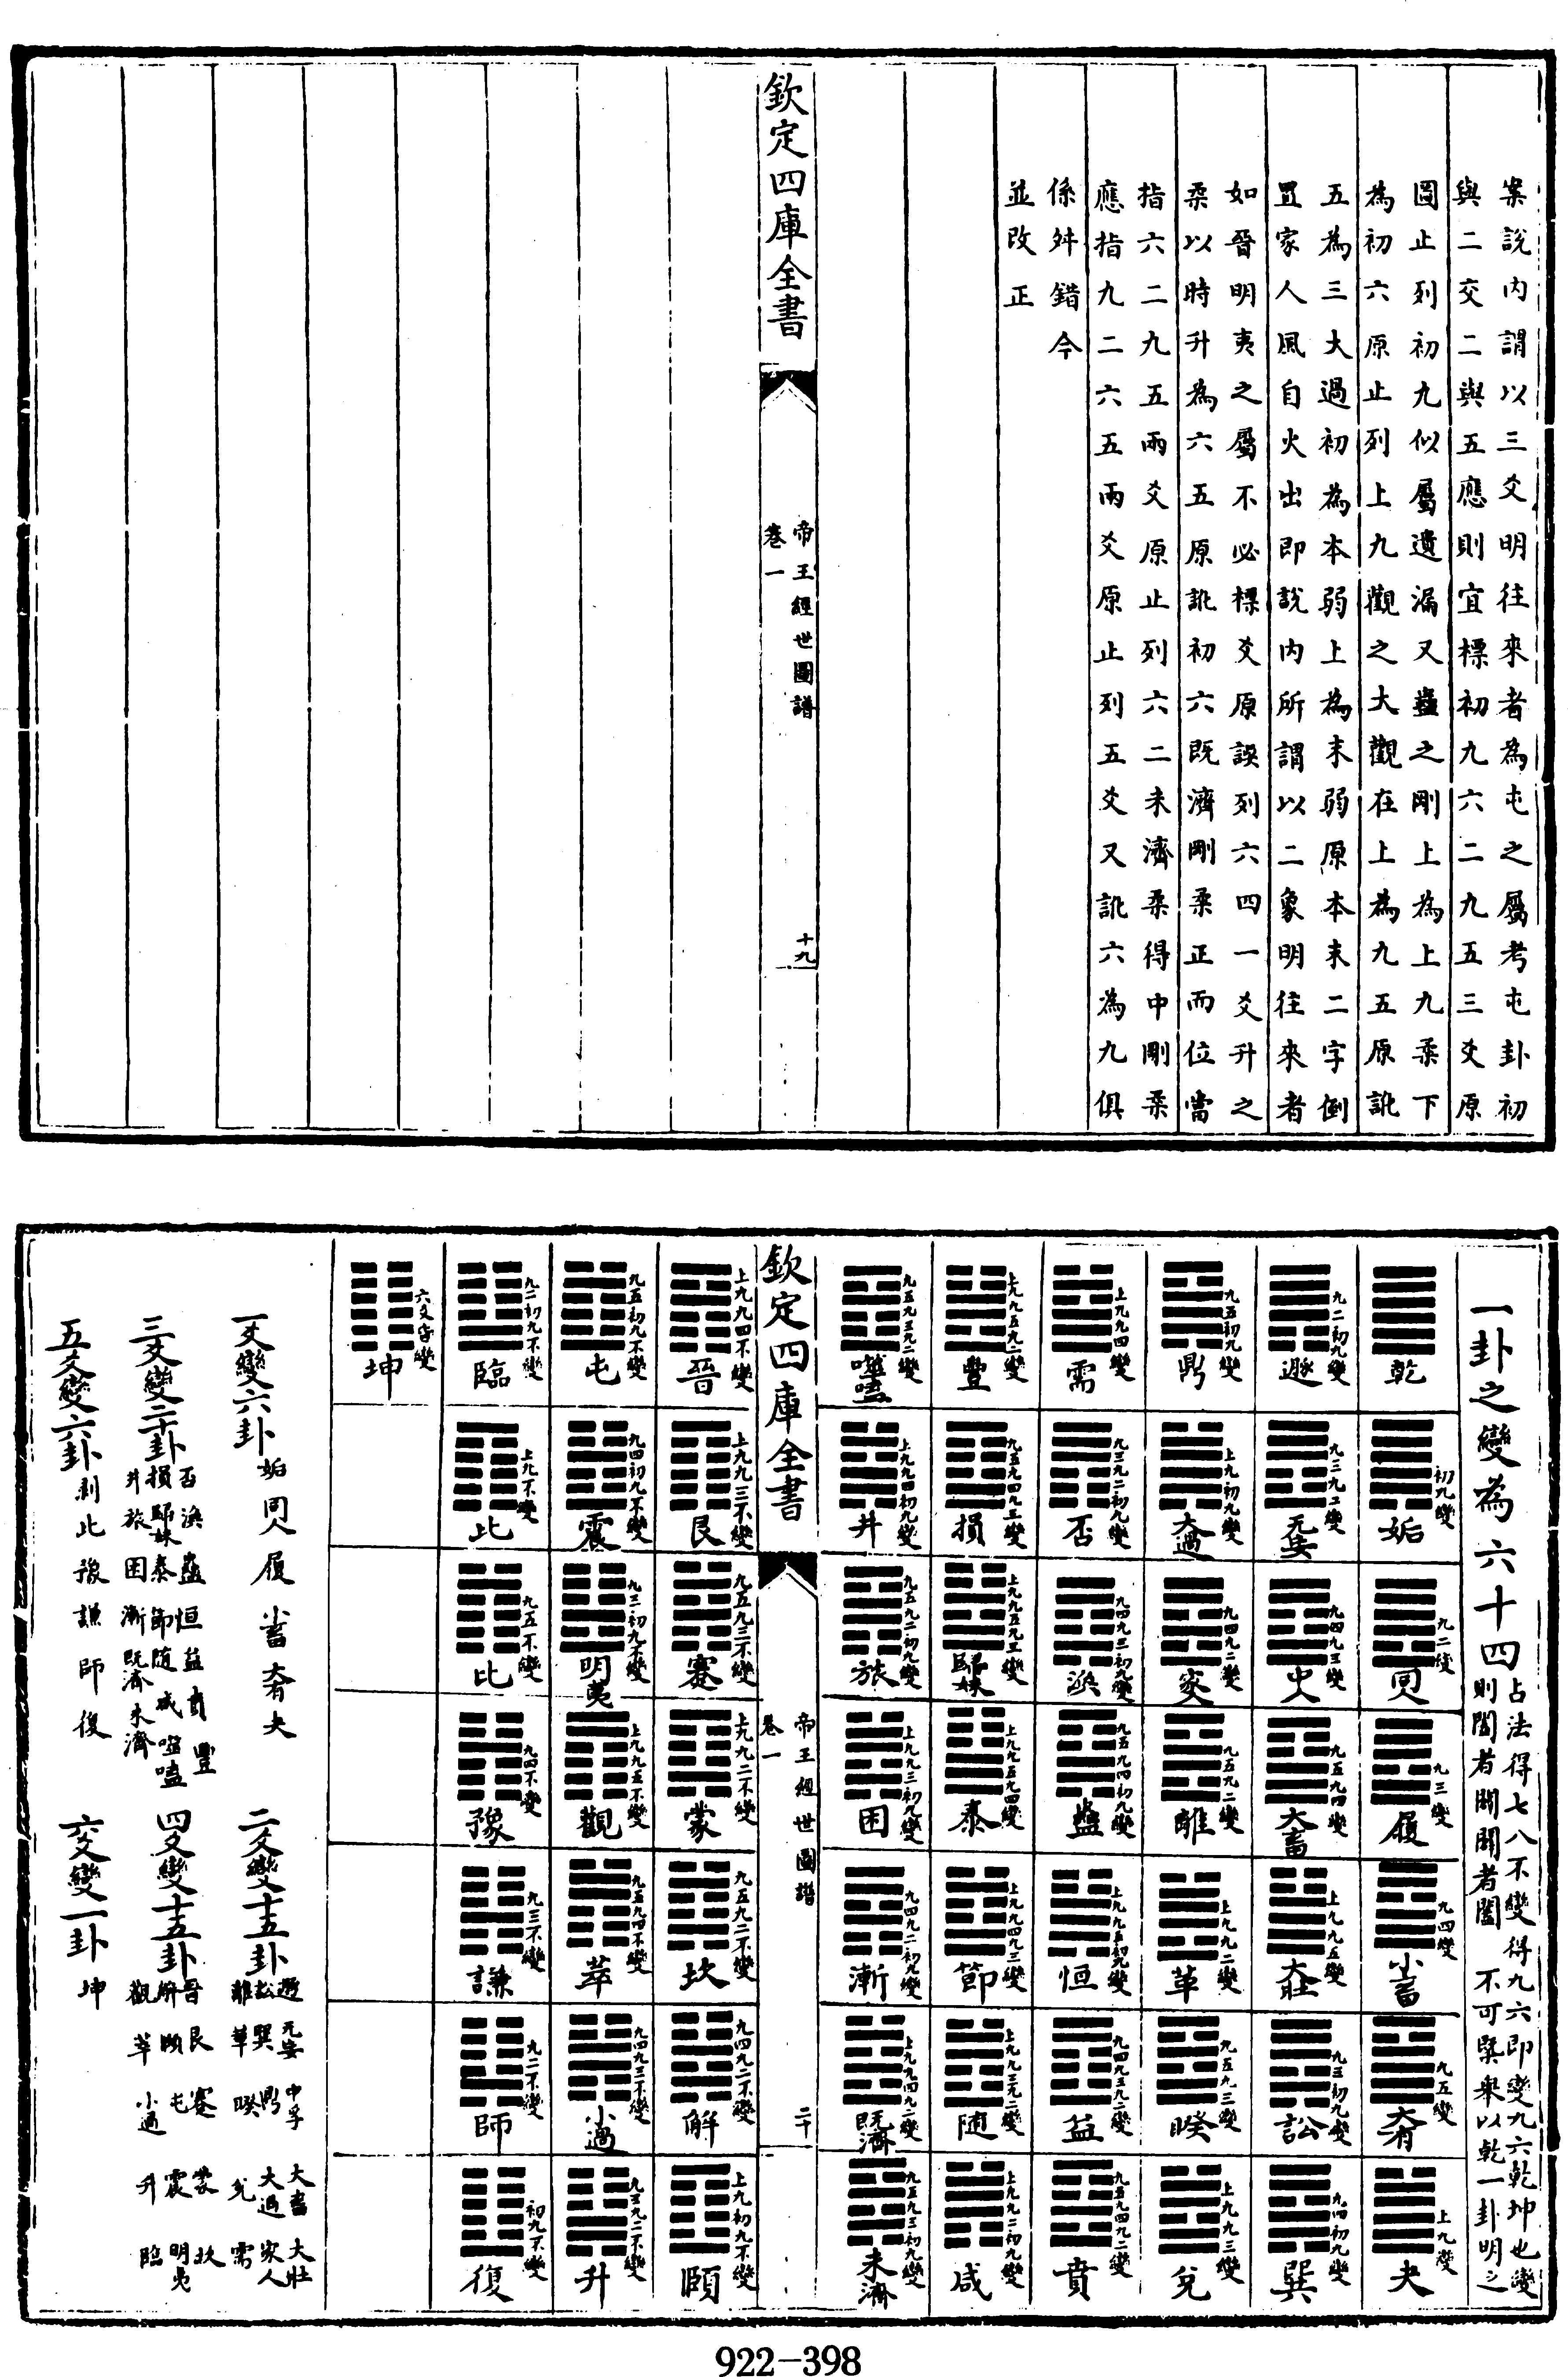 案說內謂以三爻明往來者為屯之屬考屯卦初
與二交二與五應則宜標初九六二九五三爻原
圖止列初九似屬遺漏又蠱之剛上為上九柔下
為初六原止列上九觀之大觀在上為九五原訛
五為三大過初為本弱上為末弱原本末二字倒
置家人風自火出即說內所謂以二象明往來者
如晉明夷之屬不必標爻原誤列六四一爻升之
柔以時升為六五原訛初六既濟剛柔正而位當
指六二九五兩爻原止列六二未濟柔得中剛柔
應指九二六五兩爻原止列五爻又訛六為九俱
係舛錯今
並改正
欽定四庫全書
帝王經世圖譜
卷一
十九
一卦之變為六十四
占法得七八不變得九六即變九六乾坤也變
則闔者闢闢者闔 不可槩舉以乾一卦明之
乾
初九變 姤
九二變 同人
九三變 履
九四變 小畜
九五變 大有
上九變 夬
九二初九變 遯
九三九二變 无妄
九四九三變 中孚
九五九四變 大畜
上九九五變 大壯
九三初九變 訟
九四初九變 巽
九五初九變 鼎
上九初九變 大過
九四九二變 家人
九五九二變 離
上九九二變 革
九五九三變 睽
上九九三變 兌
上九九四變 需
九三九二初九變 否
九四九三初九變 渙
九五九四初九變 蠱
上九九五初九變 恒
九四九三九二變 益
九五九四九二變 賁
上九九五九二變 豐
九五九四九三變 損
上九九五九三變 歸妹
上九九五九四變 泰
上九九四九三變 節
上九九三九二變 隨
上九九二初九變 咸
九五九三九二變 噬嗑
上九九四初九變 井
九五九二初九變 旅
上九九三初九變 困
九四九二初九變 漸
上九九四九二變 既濟
九五九三初九變 未濟
欽定四庫全書
帝王經世圖譜
卷一
二十
上九九四不變 晉
上九九三不變 艮
九五九三不變 蹇
上九九二不變 蒙
九五九二不變 坎
九四九二不變 解
上九初九不變 頤
九五初九不變 屯
九四初九不變 震
九三初九不變 明夷
上九九五不變 觀
九五九四不變 萃
九四九三不變 小過
九三九二不變 升
九二初九不變 臨
上九不變 比
九五不變 比
九四不變 豫
九三不變 謙
九二不變 師
初九不變 復
六爻皆變 坤
一爻變六卦 姤 同人 履 小畜 大有 夬
二爻變十五卦 遯 无妄 中孚 大畜 大壯
訟 巽 鼎 大過 家人
離 革 睽 兌 需
三爻變二十卦 否 渙 蠱 恒 益 賁 豐
損 歸妹 泰 節 隨 咸 噬嗑
井 旅 困 漸 既濟 未濟
四爻變十五卦 晉 艮 蹇 蒙 坎
解 頤 屯 震 明夷
觀 萃 小過 升 臨
五爻變六卦 剝 比 豫 謙 師 復
六爻變一卦 坤
922-398